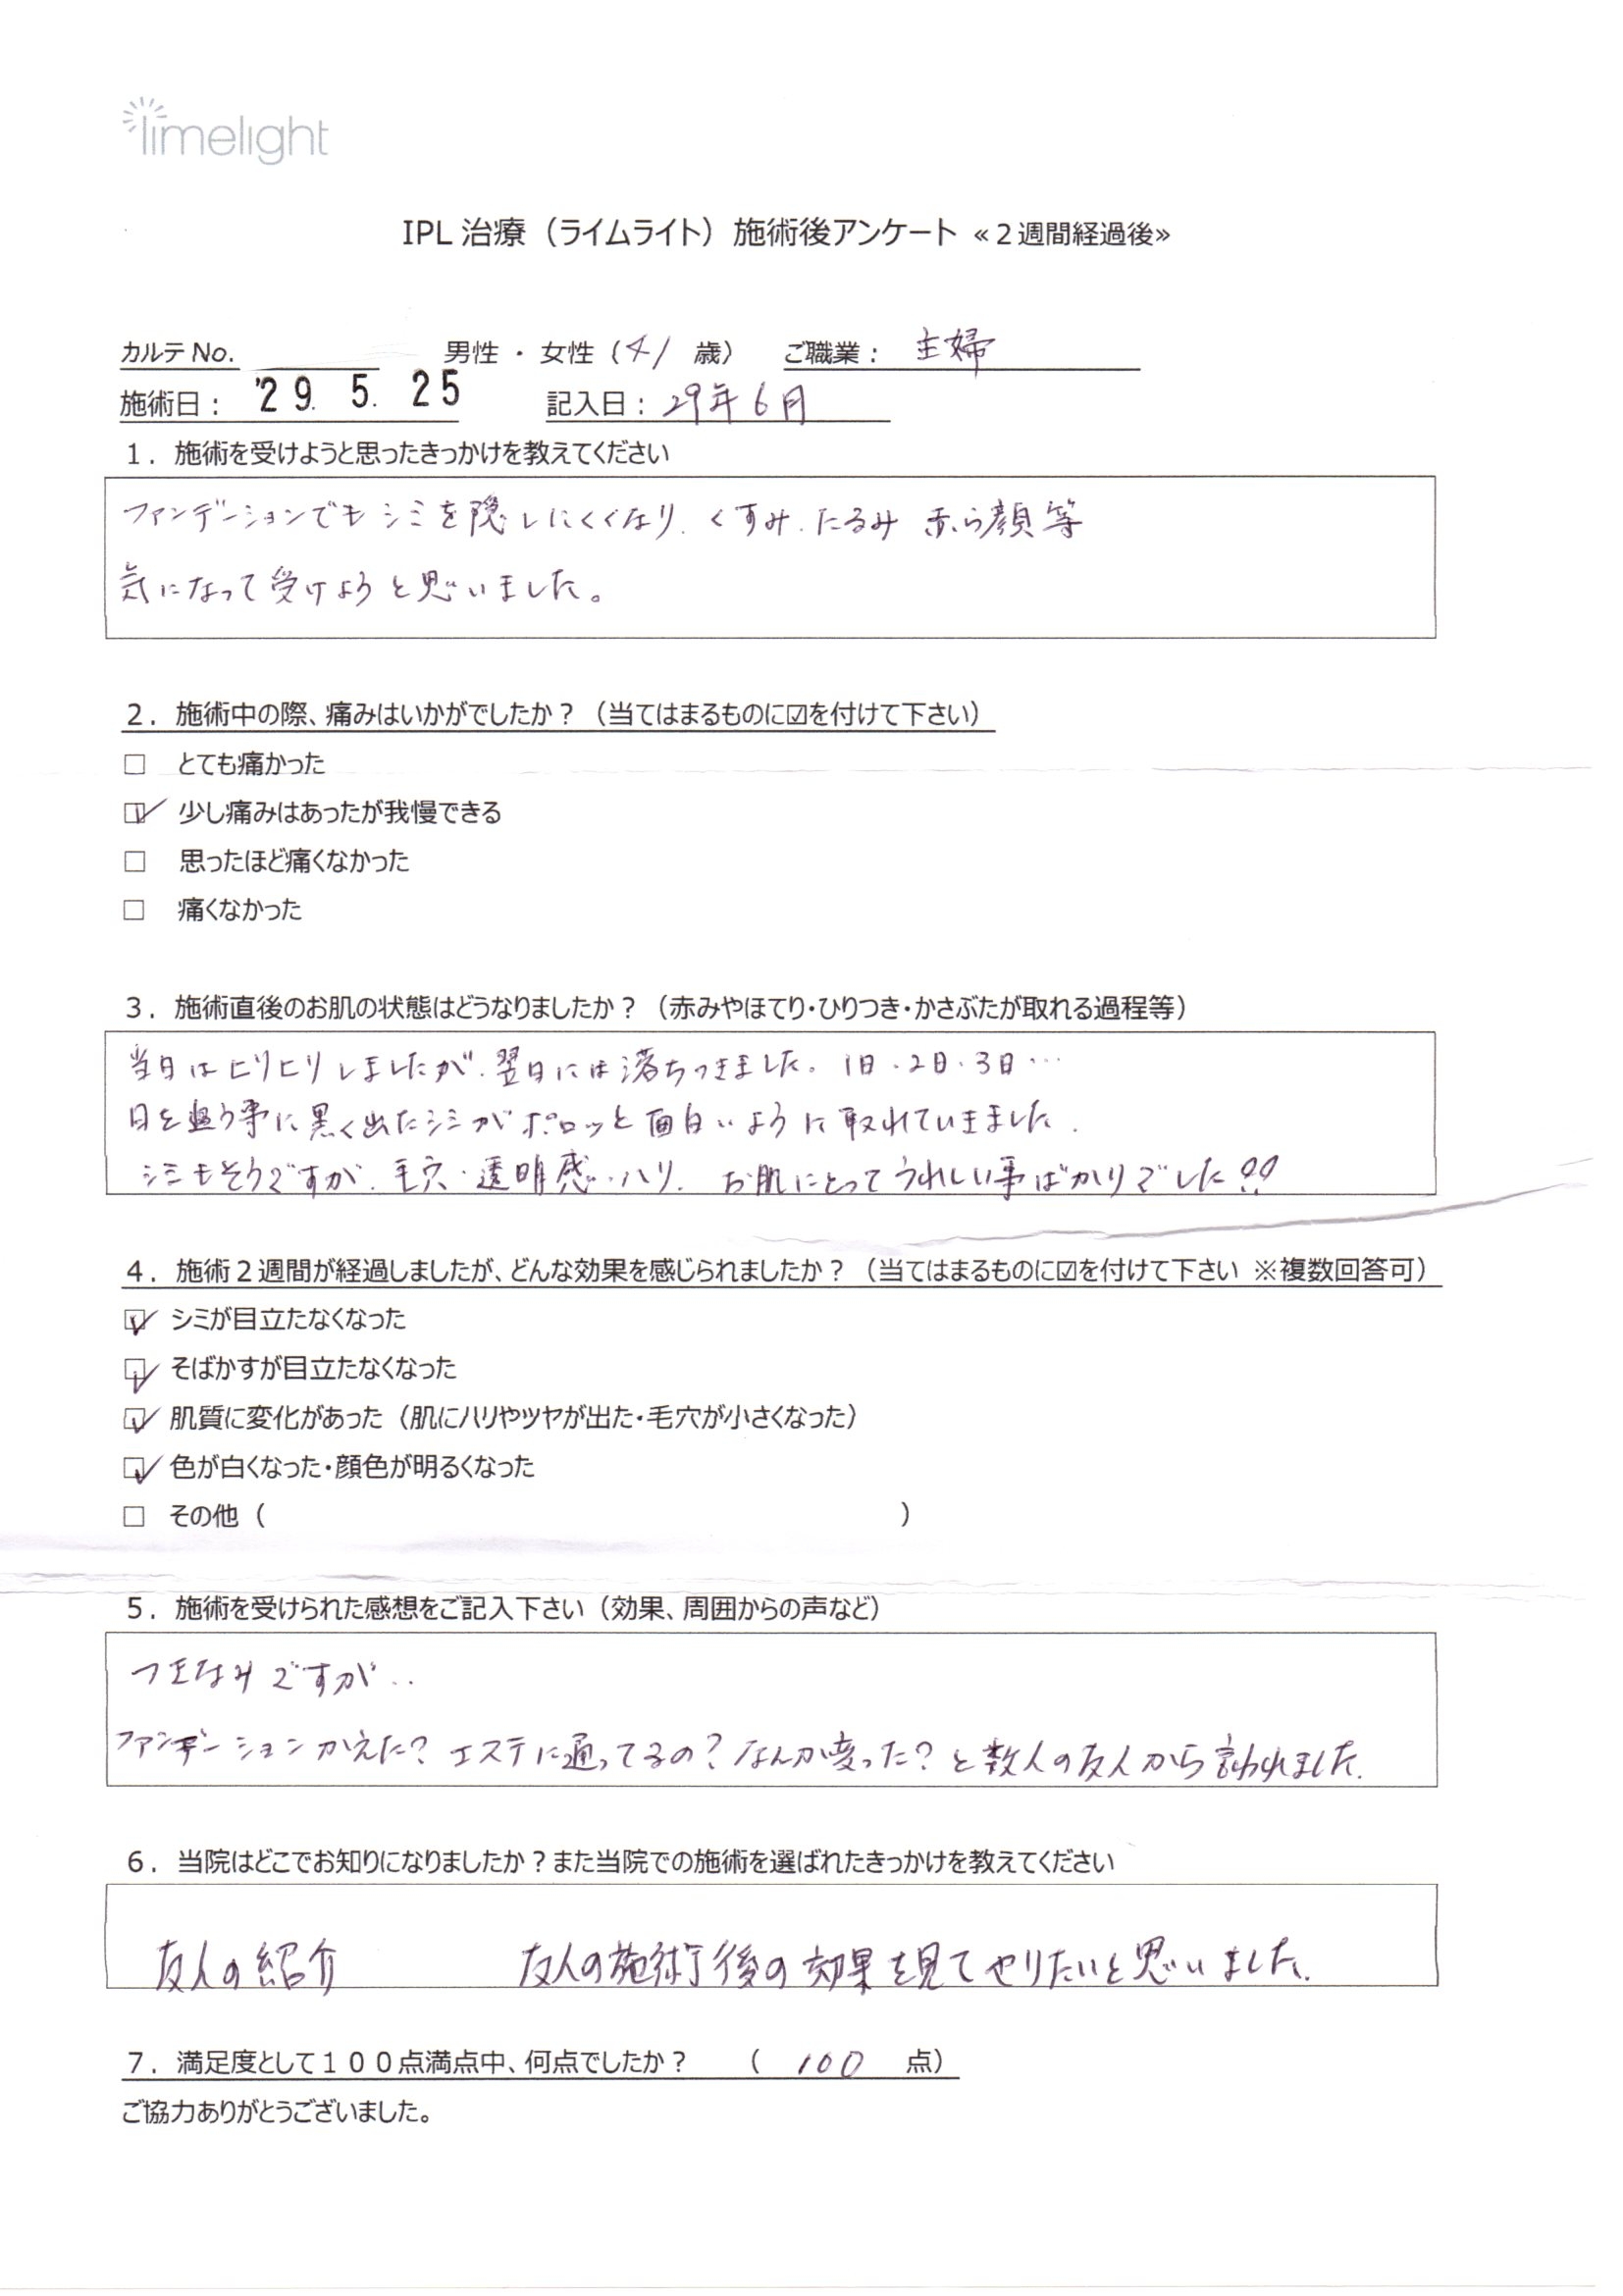 limelight
IPL 治療（ライムライト）施術後アンケート ≪２週間経過後≫
カルテ No. 男性 ・ 女性（ 41 歳） ご職業： 主婦
施術日： '29. 5. 25 記入日： 29年6月
１．施術を受けようと思ったきっかけを教えてください
ファンデーションでもシミを隠しにくくなり、くすみ、たるみ 赤ら顔等
気になって受けようと思いました。
２．施術中の際、痛みはいかがでしたか？（当てはまるものに☑を付けて下さい）
□ とても痛かった
☑ 少し痛みはあったが我慢できる
□ 思ったほど痛くなかった
□ 痛くなかった
３．施術直後のお肌の状態はどうなりましたか？（赤みやほてり・ひりつき・かさぶたが取れる過程等）
当日はヒリヒリしましたが、翌日には落ちつきました。1日、2日、3日…
日を追う事に黒く出たシミがポロッと面白いように取れていきました。
シミもそうですが、毛穴・透明感・ハリ、お肌にとってうれしい事ばかりでした!!
４．施術２週間が経過しましたが、どんな効果を感じられましたか？（当てはまるものに☑を付けて下さい ※複数回答可）
☑ シミが目立たなくなった
☑ そばかすが目立たなくなった
☑ 肌質に変化があった（肌にハリやツヤが出た・毛穴が小さくなった）
☑ 色が白くなった・顔色が明るくなった
□ その他（ ）
５．施術を受けられた感想をご記入下さい（効果、周囲からの声など）
つきなみですが‥
ファンデーションかえた？エステに通ってるの？なんか変った？と数人の友人から言われました。
６．当院はどこでお知りになりましたか？また当院での施術を選ばれたきっかけを教えてください
友人の紹介 友人の施術後の効果を見てやりたいと思いました。
７．満足度として１００点満点中、何点でしたか？ （ 100 点）
ご協力ありがとうございました。